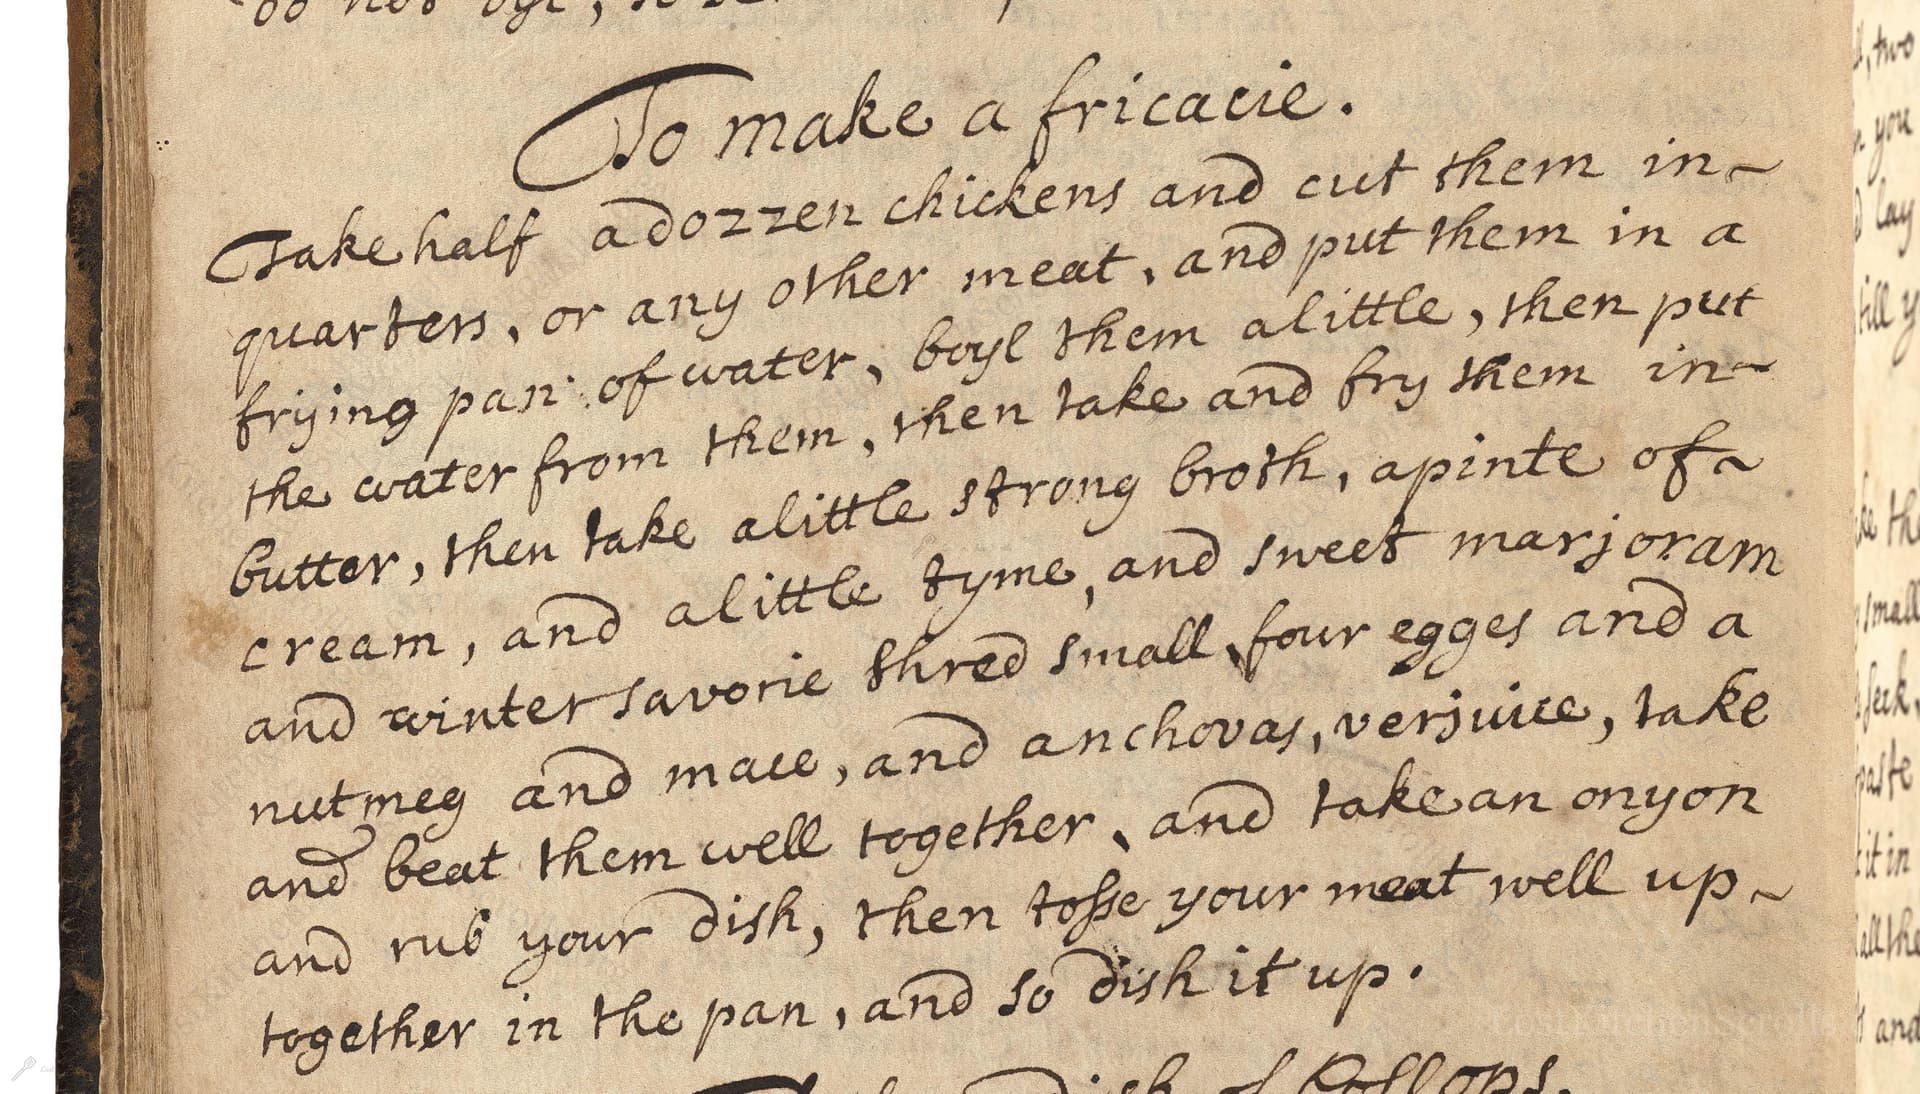 do not
To make a fricacie.
Take half a dozzen chickens and cut them in~
quarters, or any other meat, and put them in a
frying pan of water, boyl them a little, then put
the water from them, then take and fry them in~
butter, then take a little strong broth, a pinte of~
cream, and a little tyme, and sweet marjoram
and winter savorie shred small, four egges and a
nutmeg and mace, and anchovas, verjuice, take
and beat them well together, and take an onyon
and rub your dish, then tosse your meat well up~
together in the pan, and so dish it up.
of Collops.
two
you
lay
till
the
small
paste
it in
all the
and